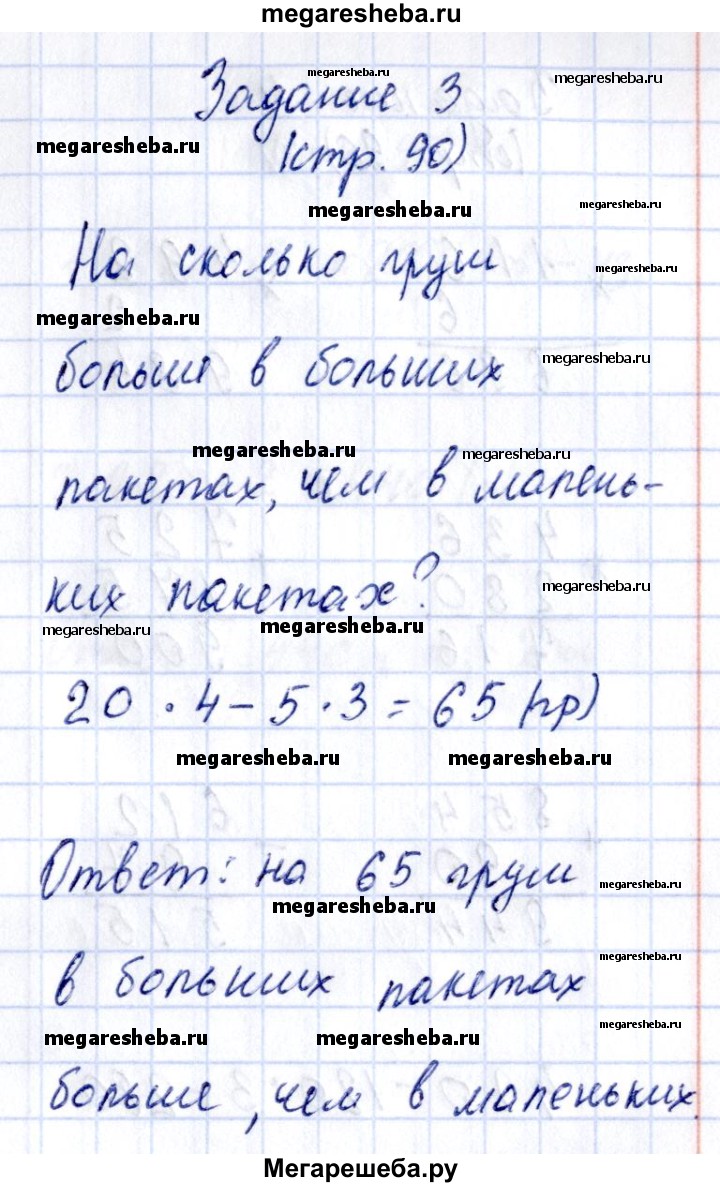 megaresheba.ru
megaresheba.ru
megaresheba.ru
Задание 3
megaresheba.ru
(стр. 90)
megaresheba.ru
megaresheba.ru
На сколько груш
megaresheba.ru
megaresheba.ru
больше в больших
megaresheba.ru
megaresheba.ru
megaresheba.ru
пакетах, чем в малень-
ких пакетах?
megaresheba.ru
megaresheba.ru
megaresheba.ru
20 · 4 - 5 · 3 = 65 (гр)
megaresheba.ru
megaresheba.ru
Ответ: на 65 груш
megaresheba.ru
megaresheba.ru
в больших пакетах
megaresheba.ru
megaresheba.ru
megaresheba.ru
megaresheba.ru
больше, чем в маленьких.
Мегарешеба.ру